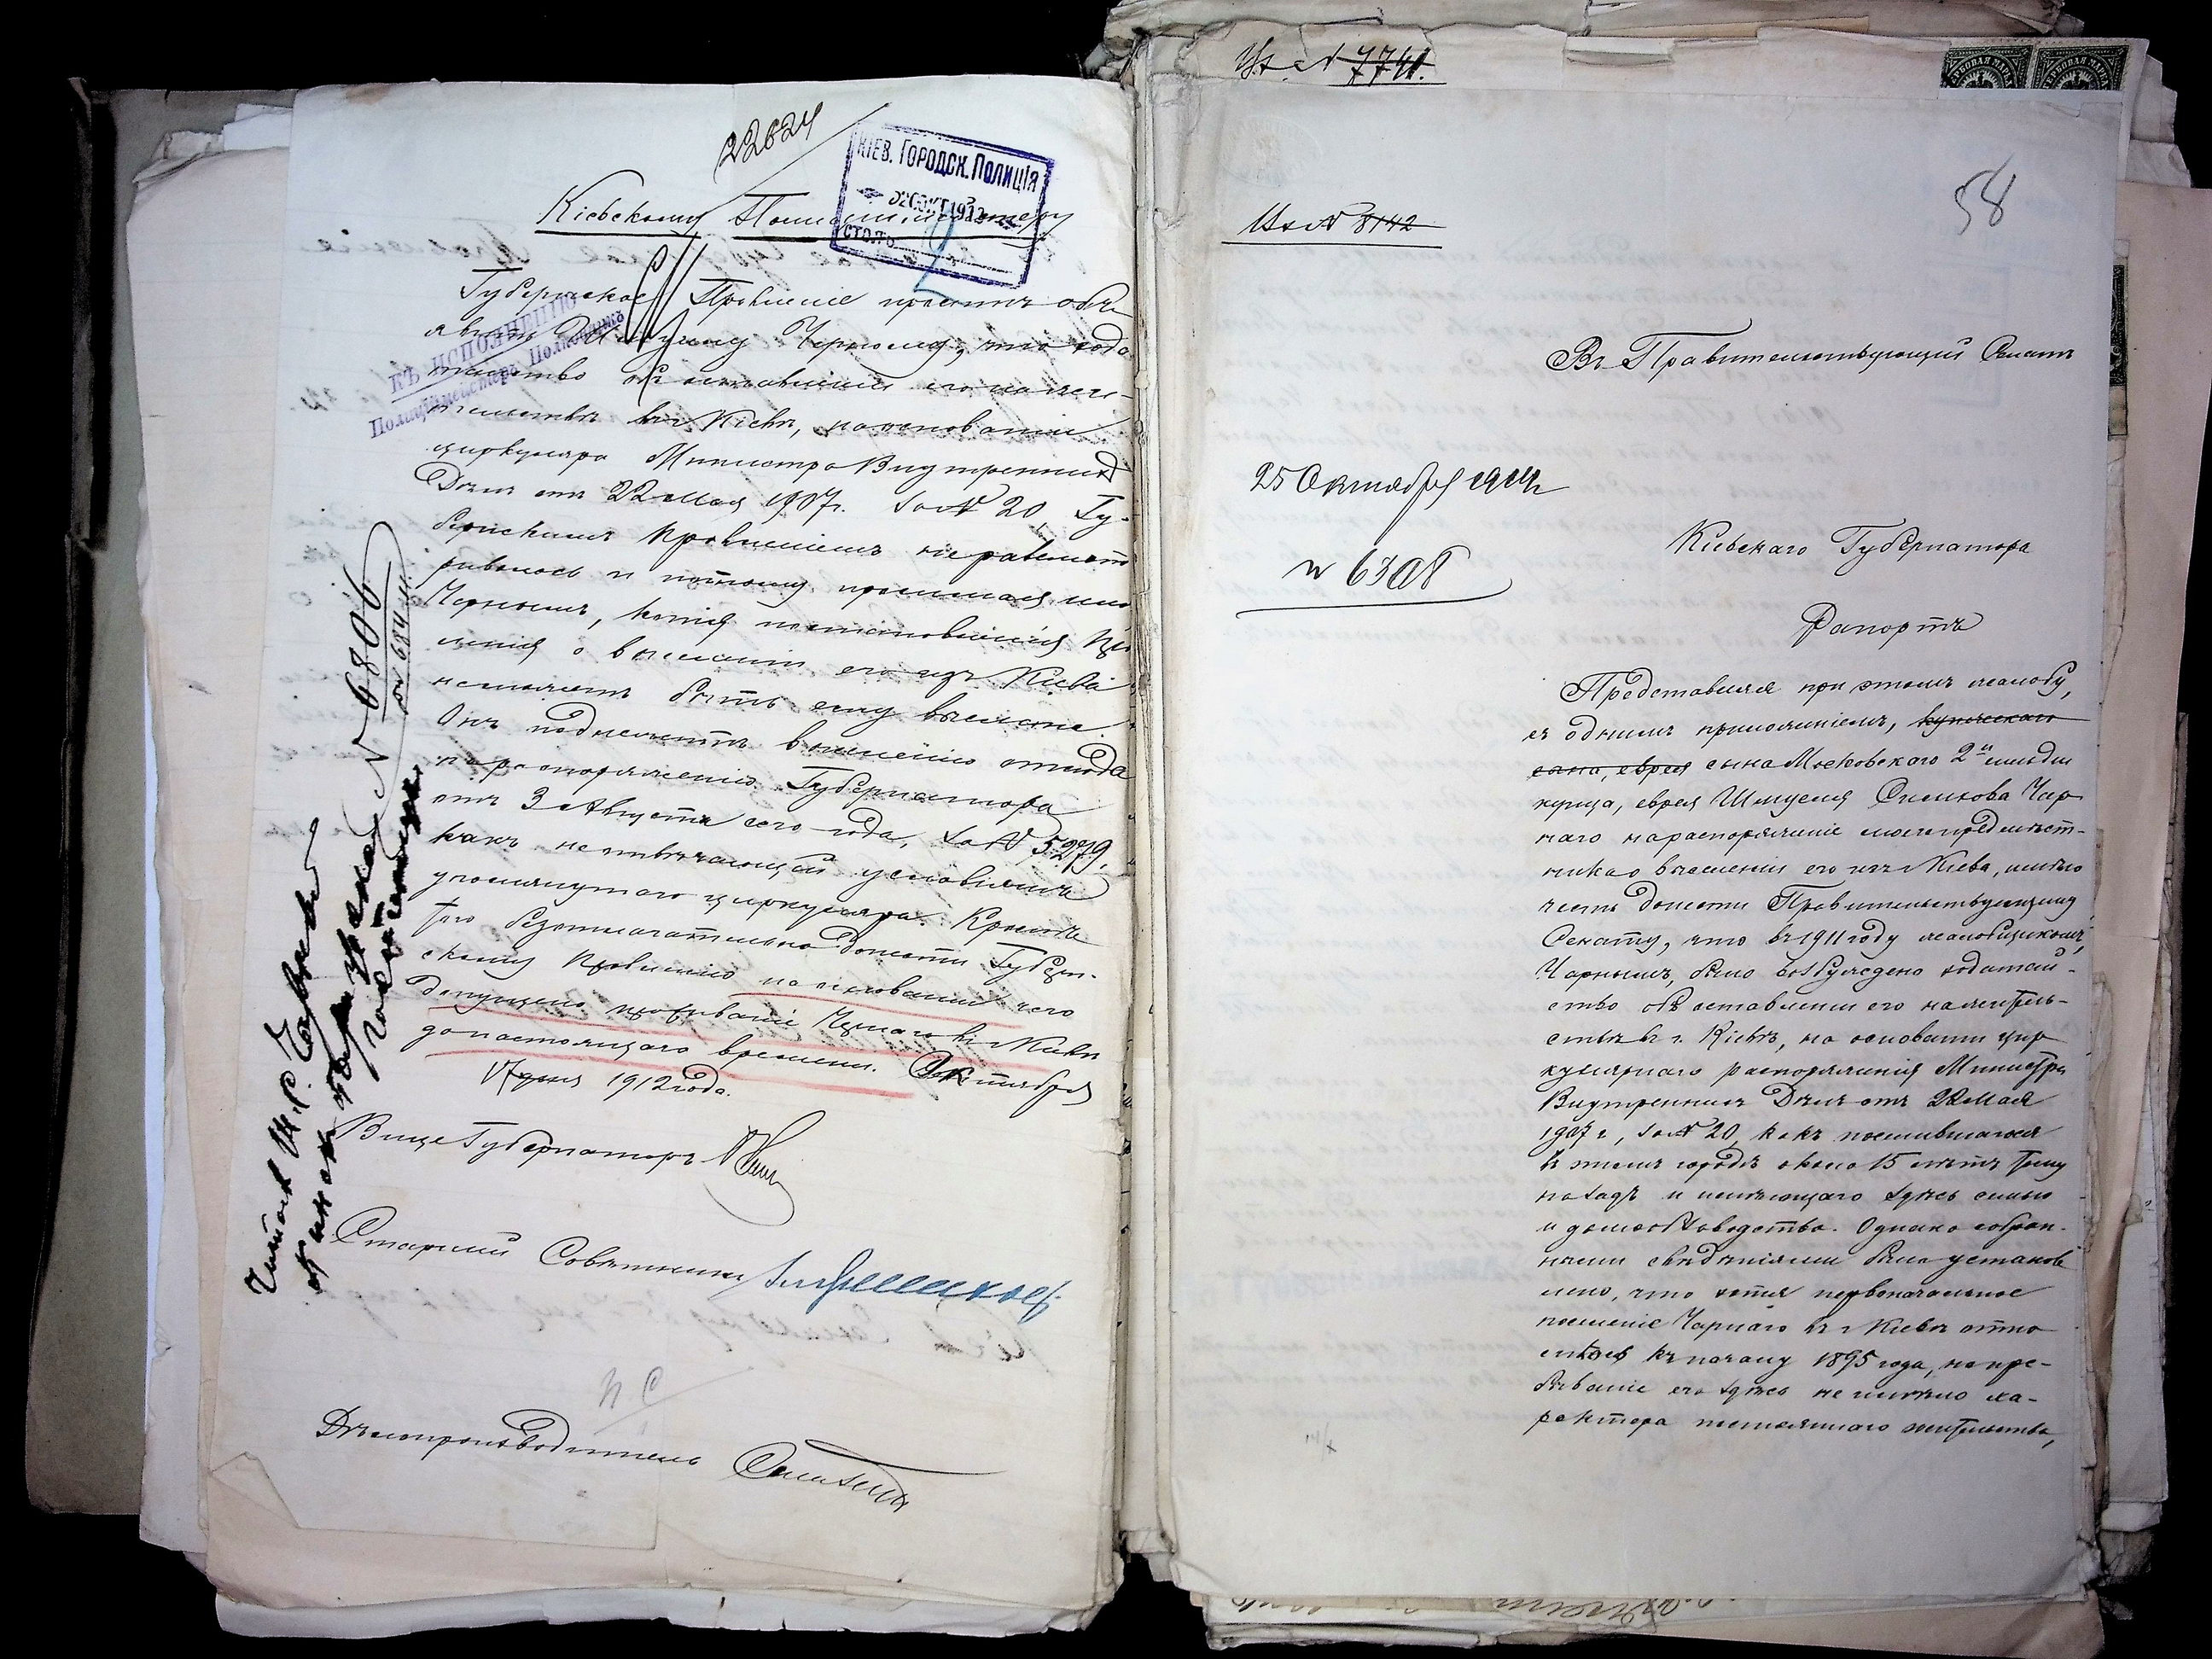 22624
КІЕВ. ГОРОДСК. ПОЛИЦІЯ
ОКТ 1912
СТОЛЪ
2
Кіевскому Полиціймейстеру
КЪ ИСПОЛНЕНІЮ
Полиціймейстеръ Полковникъ
Губернское Правленіе проситъ объ-
явить Шмулю Черному, что хода-
тайство объ оставленіи его на жи-
тельствѣ въ г. Кіевѣ, на основаніи
циркуляра Министра Внутреннихъ
Дѣлъ отъ 22 Мая 1907 г. за № 20, Гу-
бернскимъ Правленіемъ не разсмат-
ривалось и потому просимая имъ
Чернымъ, копія постановленія Прав-
ленія о выселеніи его изъ Кіева
не можетъ быть ему выслана.
Онъ подлежитъ выселенію отсюда
по распоряженію Губернатора
отъ 3 Августа сего года, за № 5279,
какъ не отвѣчающій условіямъ
упомянутаго циркуляра. Кромѣ
того безотлагательно донести Губерн-
скому Правленію на основаніи чего
допущено проживаніе Чернаго въ г. Кіевѣ
до настоящаго времени. Октября
17 дня 1912 года.
Вице Губернаторъ
Старшій Совѣтникъ
Дѣлопроизводитель
№ 6806
Читалъ Ш. С. Чарный
Их. № 7741.
58
Их № 8142
Въ Правительствующій Сенатъ
25 Октября 1914 г
№ 6308
Кіевскаго Губернатора
Рапортъ
Представляя при этомъ жалобу,
съ однимъ приложеніемъ, купеческаго
сына, еврея сына Московскаго 2й гильдіи
купца, еврея Шмуеля Симхова Чар-
наго на распоряженіе моего предмѣст-
ника о выселеніи его изъ г. Кіева, имѣю
честь донести Правительствующему
Сенату, что въ 1911 году жалобщикомъ,
Чарнымъ, было возбуждено ходатай-
ство объ оставленіи его на житель-
ствѣ въ г. Кіевѣ, на основаніи цир-
кулярнаго распоряженія Министра
Внутреннихъ Дѣлъ отъ 22 Мая
1907 г., за № 20, какъ поселившагося
въ этомъ городѣ около 15 лѣтъ тому
назадъ и имѣющаго здѣсь семью
и домообзаводство. Однако собран-
ными свѣдѣніями было установ-
лено, что хотя первоначальное
поселеніе Чарнаго въ г. Кіевѣ отно-
силось къ началу 1895 года, но пре-
бываніе его здѣсь не имѣло ха-
рактера постояннаго жительства,